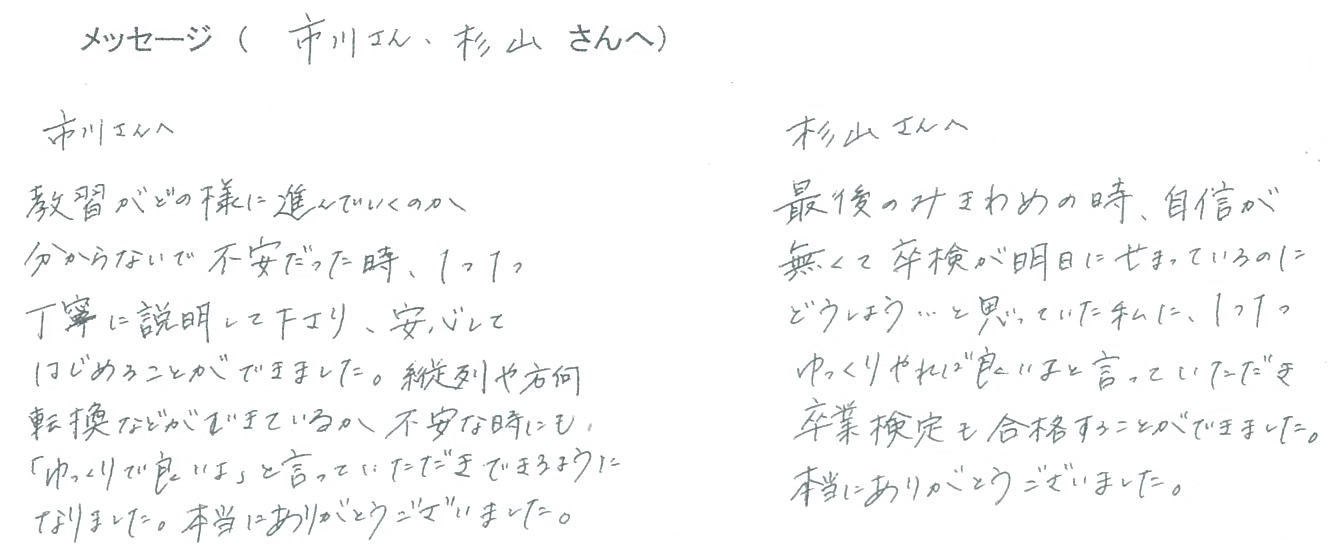 メッセージ（ 市川さん、杉山 さんへ）
市川さんへ
教習がどの様に進んでいくのか
分からないで不安だった時、1つ1つ
丁寧に説明して下さり、安心して
はじめることができました。縦列や方向
転換などができているか不安な時にも
「ゆっくりで良いよ」と言っていただきできるように
なりました。本当にありがとうございました。
杉山さんへ
最後のみきわめの時、自信が
無くて卒検が明日にせまっているのに
どうしよう…と思っていた私に、1つ1つ
ゆっくりやれば良いよと言っていただき
卒業検定も合格することができました。
本当にありがとうございました。